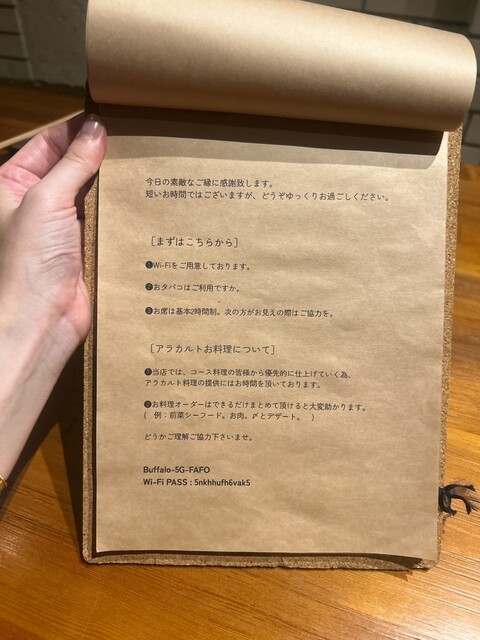 今日の素敵なご縁に感謝致します。
短いお時間ではございますが、どうぞゆっくりお過ごしください。
［まずはこちらから］
❶Wi-Fiをご用意しております。
❷おタバコはご利用ですか。
❸お席は基本2時間制。次の方がお見えの際はご協力を。
［アラカルトお料理について］
❶当店では、コース料理の皆様から優先的に仕上げていく為、
アラカルト料理の提供にはお時間を頂いております。
❷お料理オーダーはできるだけまとめて頂けると大変助かります。
(　例：前菜シーフード。お肉。〆とデザート。　)
どうかご理解ご協力下さいませ。
Buffalo-5G-FAFO
Wi-Fi PASS : 5nkhhufh6vak5